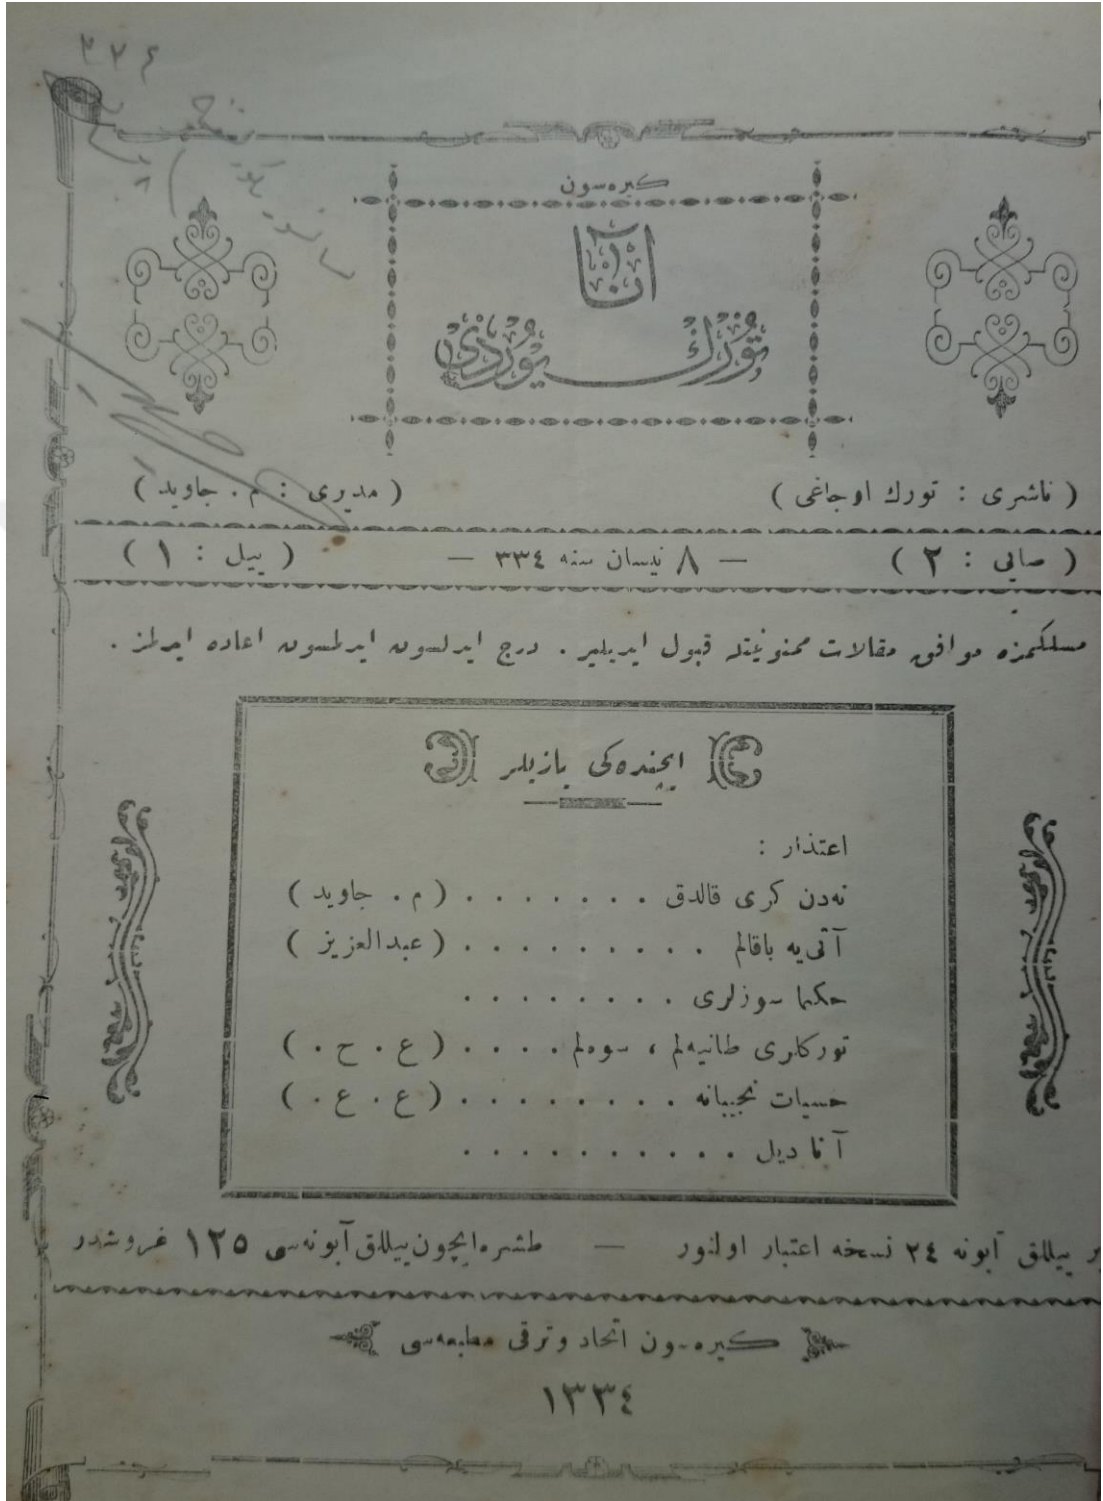 ٣٣٤
كیره‌سون
آنا
تورك یوردی
( ناشری : تورك اوجاغی ) ( مدیری : م . جاوید )
( صایی : ٢ ) — ٨ نیسان سنه ٣٣٤ — ( ییل : ١ )
مسلكمزه موافق مقالات ممنونیتله قبول ایدیلیر . درج ایدلسون ایدلمسون اعاده ایدلمز .
ایچنده‌كی یازیلر
اعتذار :
نه‌دن كری قالدق . . . . . . . ( م . جاوید )
آتی‌یه باقالم . . . . . . . . . ( عبدالعزیز )
حكما سوزلری . . . . . . . .
توركلری طانیه‌لم ، سوه‌لم . . . . ( ع . ح . )
حسیات نجیبانه . . . . . . . . ( ع . ع . )
آنا دیل . . . . . . . . . . .
بر ییللق آبونه ٢٤ نسخه اعتبار اولنور — طشره ایچون ییللق آبونه‌سی ١٢٥ غروشدر
كیره‌سون اتحاد و ترقی مطبعه‌سی
١٣٣٤